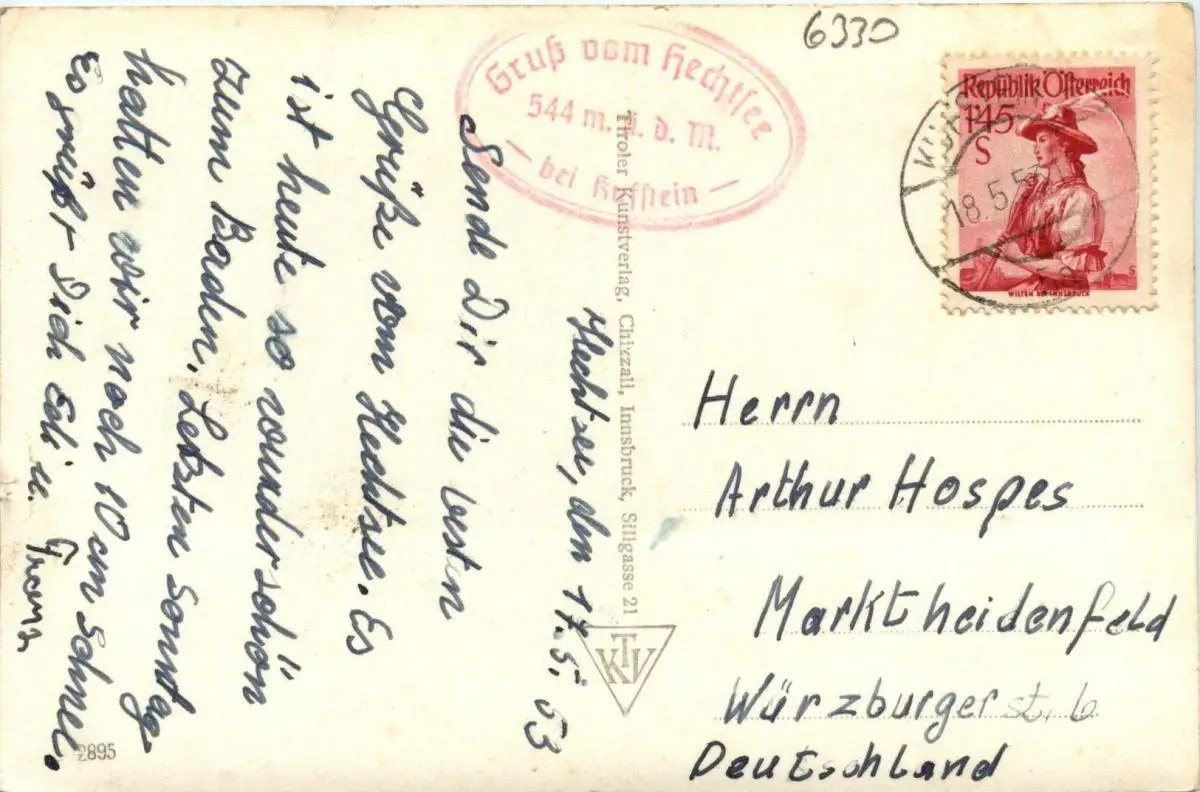 6330
Gruß vom Hechtsee
544 m. ü. d. M.
— bei Kufstein —
Republik Österreich
1'45
S
WILTEN BEI INNSBRUCK
18.5.5
Hechtsee, den 17.5.53
Sende Dir die besten
Grüße vom Hechtsee. Es
ist heute so wunderschön
zum Baden. Letzten Sonntag
hatten wir noch 10 cm Schnee.
Es grüßt Dich Edi u. Franz
Tiroler Kunstverlag, Chizzali, Innsbruck, Sillgasse 21
KTV
Herrn
Arthur Hospes
Marktheidenfeld
Würzburgerst. 6
Deutschland
2895